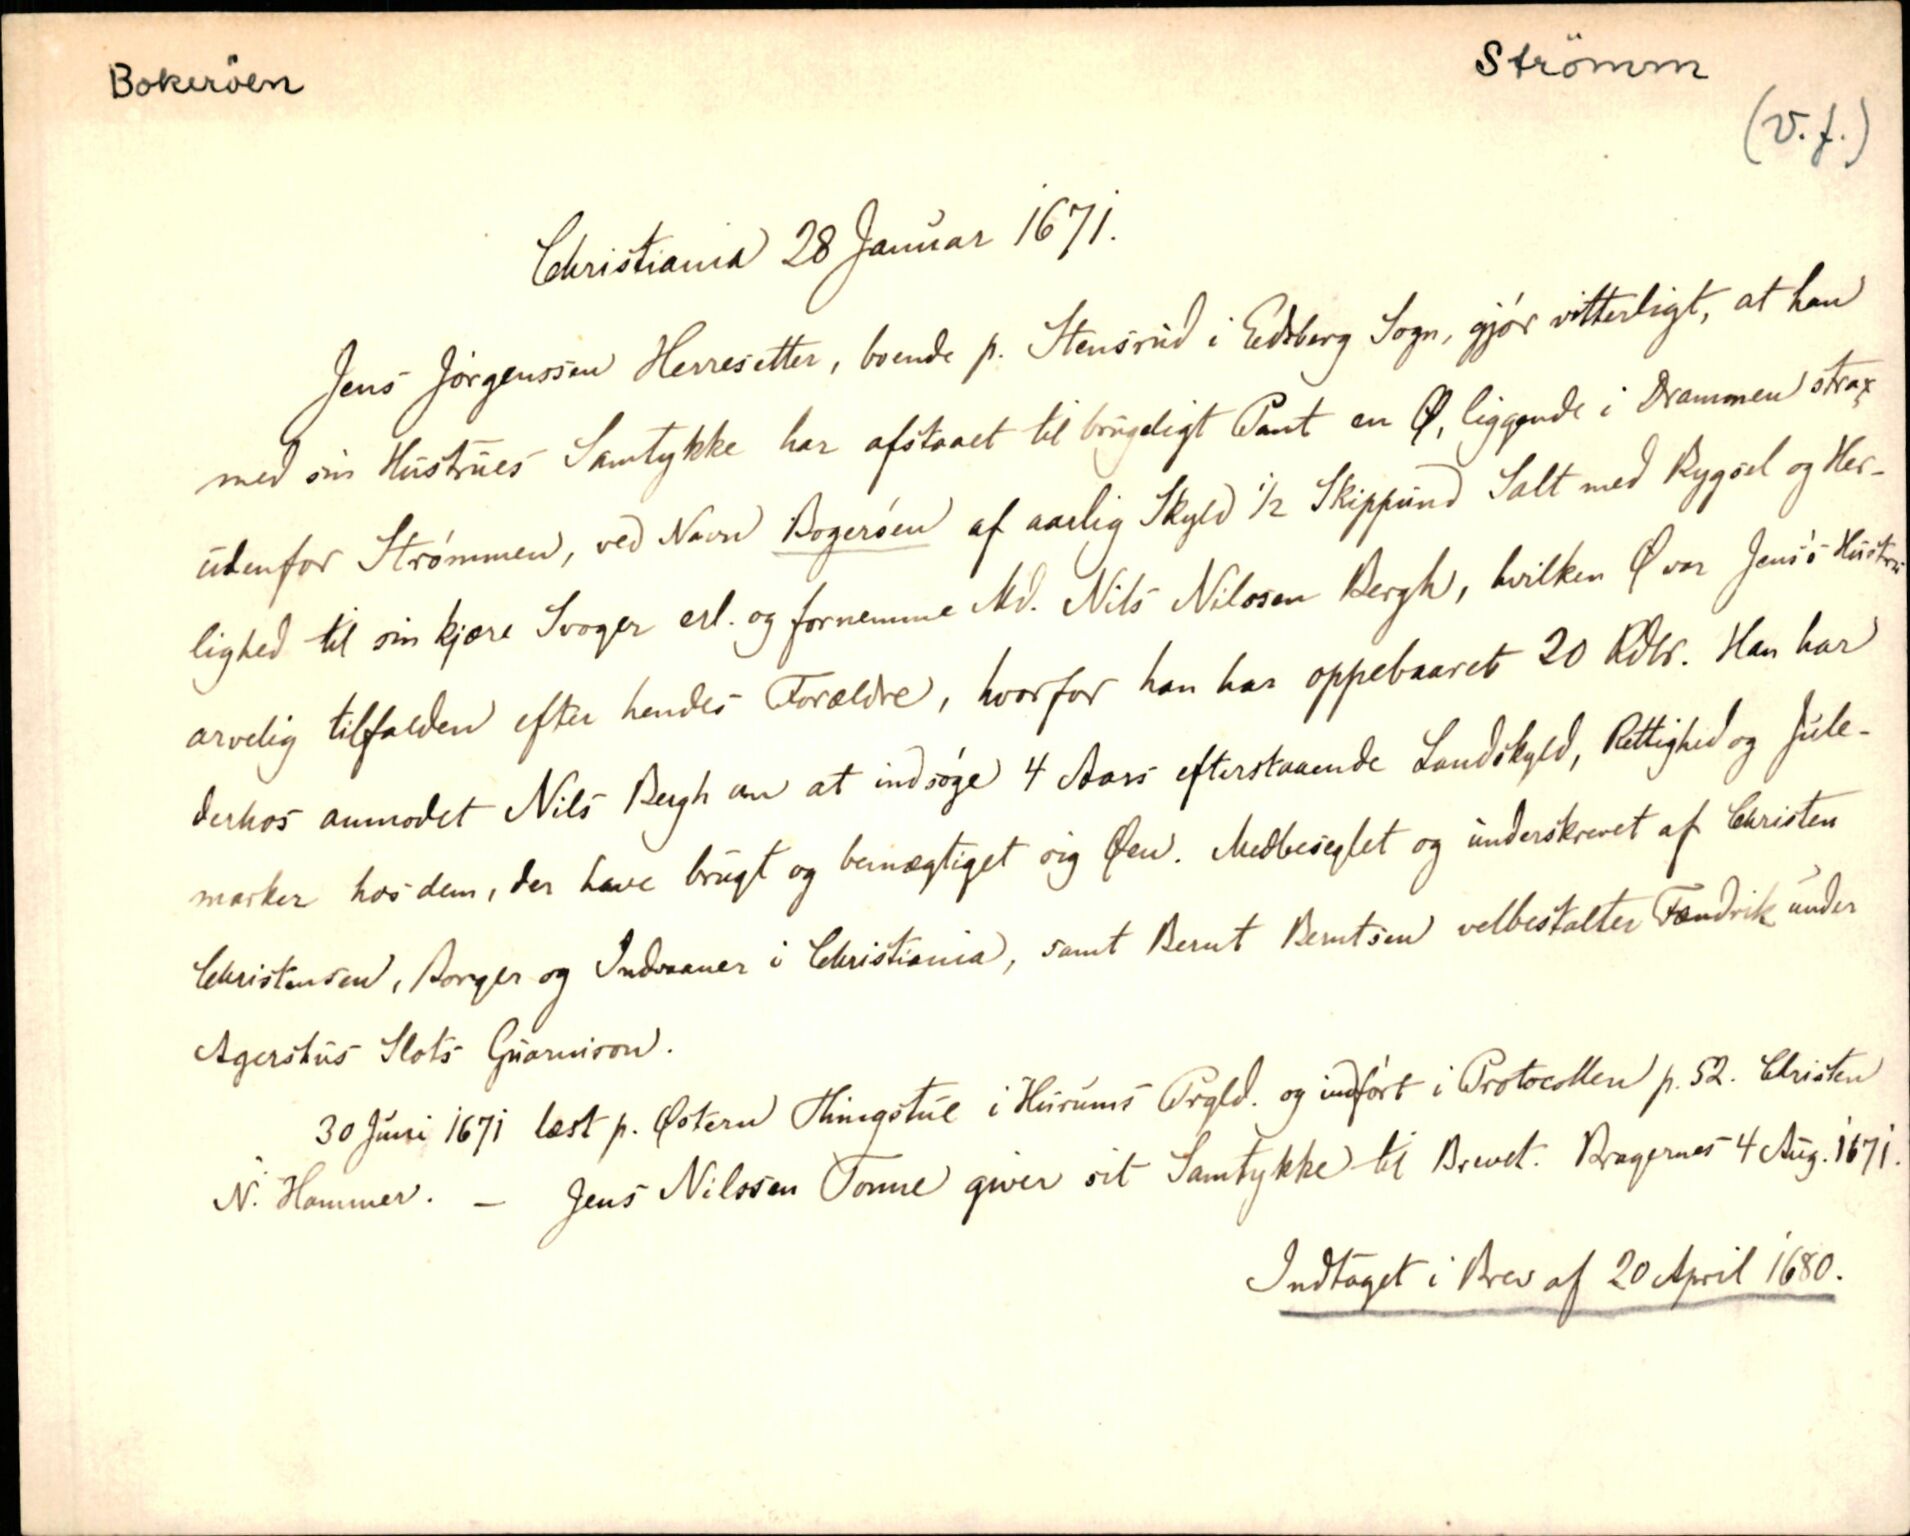 Bokeröen
Strömm
(V. f.)
Christiania 28 Januar 1671.
Jens Jørgenssen Herresetter, boende p. Stensrud i Edsberg Sogn, gjør vitterligt, at han
med sin Hustrues Samtykke har afstaaet til brugeligt Pant en Ø, liggende i Drammen strax
udenfor Strømmen, ved Navn Bogerøen af aarlig Skyld 1/2 Skippund Salt med Bygsel og Her-
lighed til sin kjære Svoger erl. og fornemme Md. Nils Nilssen Bergh, hvilken Ø var Jens's Hustru
arvelig tilfalden efter hendes Forældre, hvorfor han har oppebaaret 20 Rdlr. Han har
derhos anmodet Nils Bergh om at indsøge 4 Aars efterstaaende Landskyld, Rettighed og Fule-
marker hos dem, der have brugt og bemægtiget sig Øen. Medbeseglet og underskrevet af Christen
Christensen, Borger og Indvaaner i Christiania, samt Bernt Berntsen velbestalter Fændrik under
Agershus Slots Guarnison.
30 Juni 1671 læst p. Østern Thingstue i Hurums Prgld. og indført i Protocollen p. 52. Christen
N. Hammer. — Jens Nilssen Tonne giver sit Samtykke til Brevet. Bragernes 4 Aug. 1671.
Indtaget i Brev af 20 April 1680.